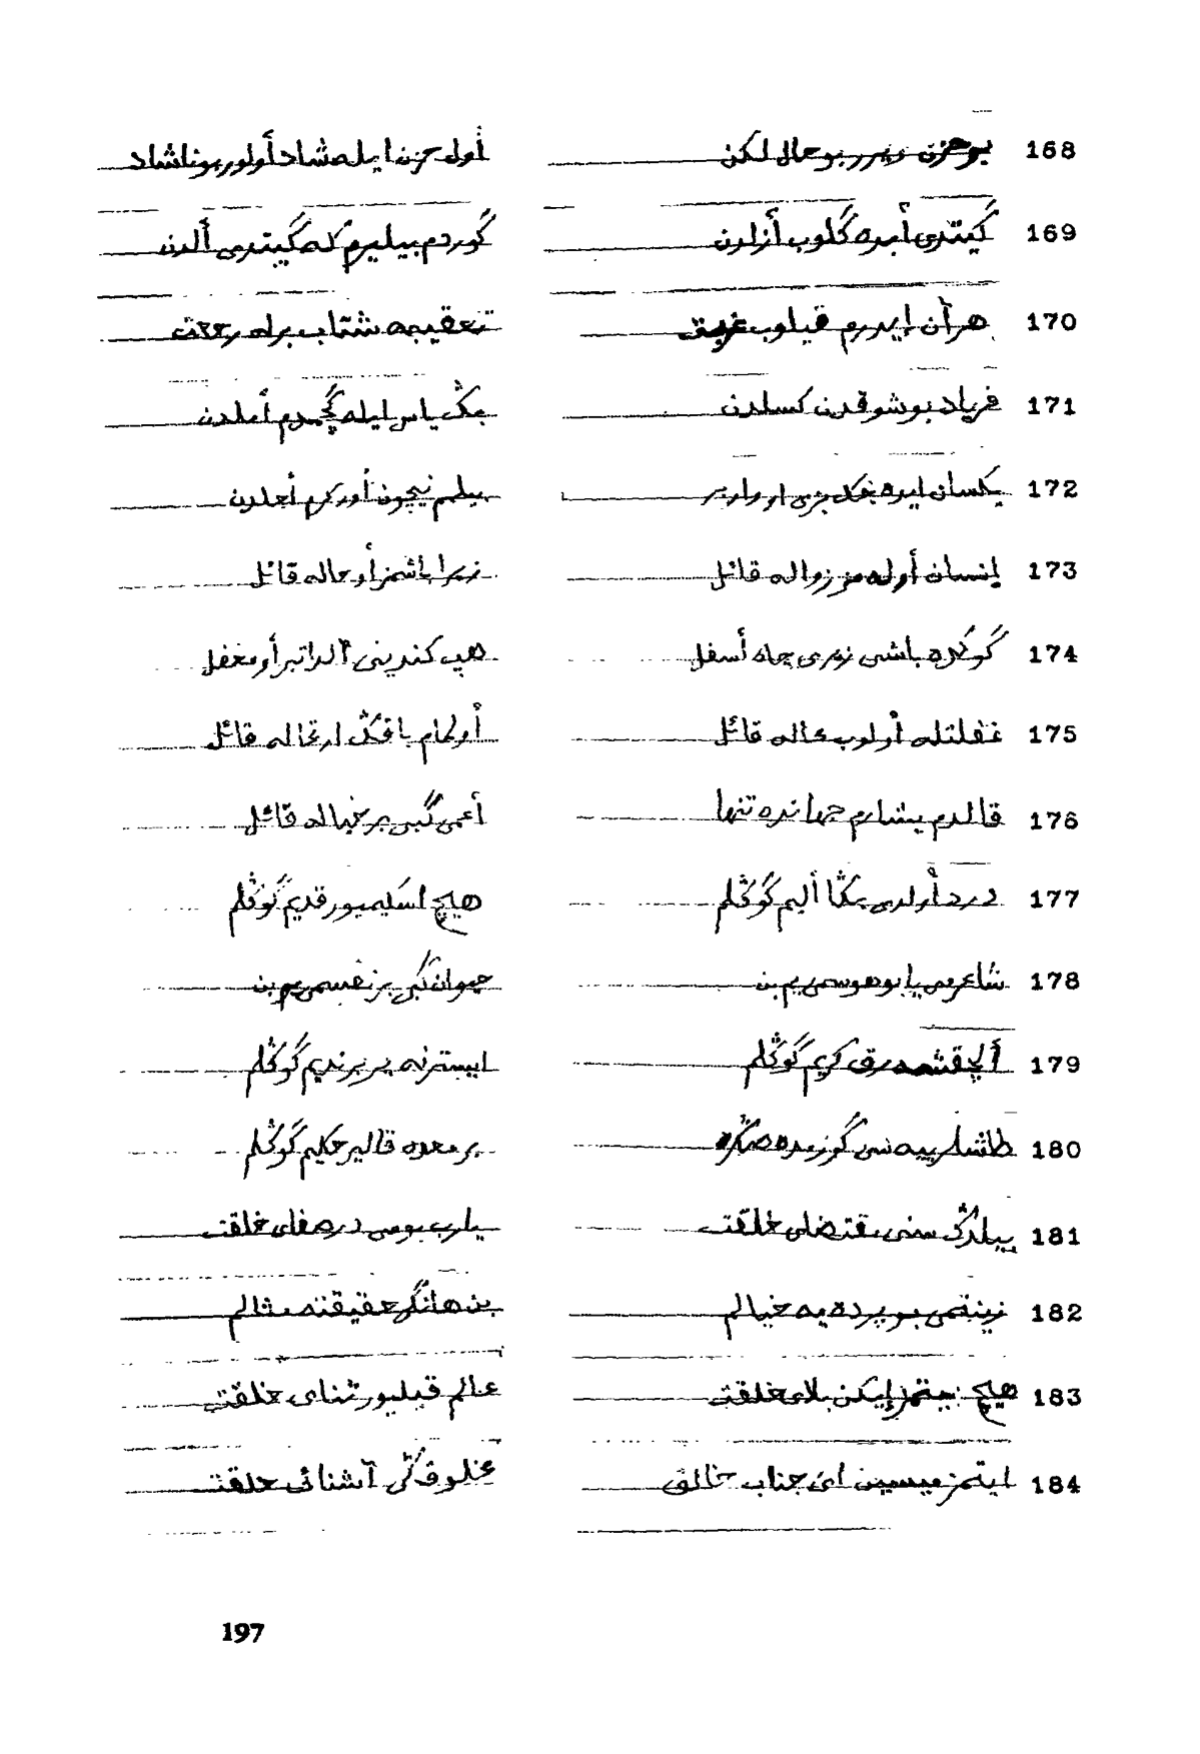 168 بو حزن ویرر بو حال لکن أول حزن ایله شاد أولور بو ناشاد
169 گیتدی أبده گلوب أزلدن گوردم بیلیرم که گیتدی ألدن
170 هر آن إیدرم قیلوب تعقیبه شتاب برله رجعت
171 فریاد بو شوقدن کسلدن بیڭ یاس ایله گچمدم أملدن
172 یکسان ایده جکدر بزی بیلمم نیچون أورکرم أجلدن
173 إنسان أوله مز زواله قائل زیرا یاشمز أو حاله قائل
174 گوکده باشی زوری چاه أسفل هپ کندینی آلداتیر أو مغفل
175 غفلتله أولوب قائل أولمام باقڭ ارتحاله قائل
176 قالدم یشارم جهانده تنها أعمی گبی بر خیاله قائل
177 درد أولدی بڭا ألیم گوڭلم هیچ اسکیمیور قدیم گوڭلم
178 شاعرمی یا بو هوسمی یم بن حیوان گبی بر نفسمی یم بن
179 ألچقشه رق کریم گوڭلم ایسترنه یر بر ندیم گوڭلم
180 طاشلر ییه سی گوزمده صڭره بر معده قالیر حکیم گوڭلم
181 بیلدڭ سنی مقتضای خلقت یارب بومی در صفای خلقت
182 زینتمی بو پرده یه خیالم بن هانگی حقیقته مثالم
183 هیچ بیتمز إیکن بلای خلقت عالم قیلیور ثنای خلقت
184 ایتمز میسین ای جناب خالق مخلوقڭی آشنای خلقت
197